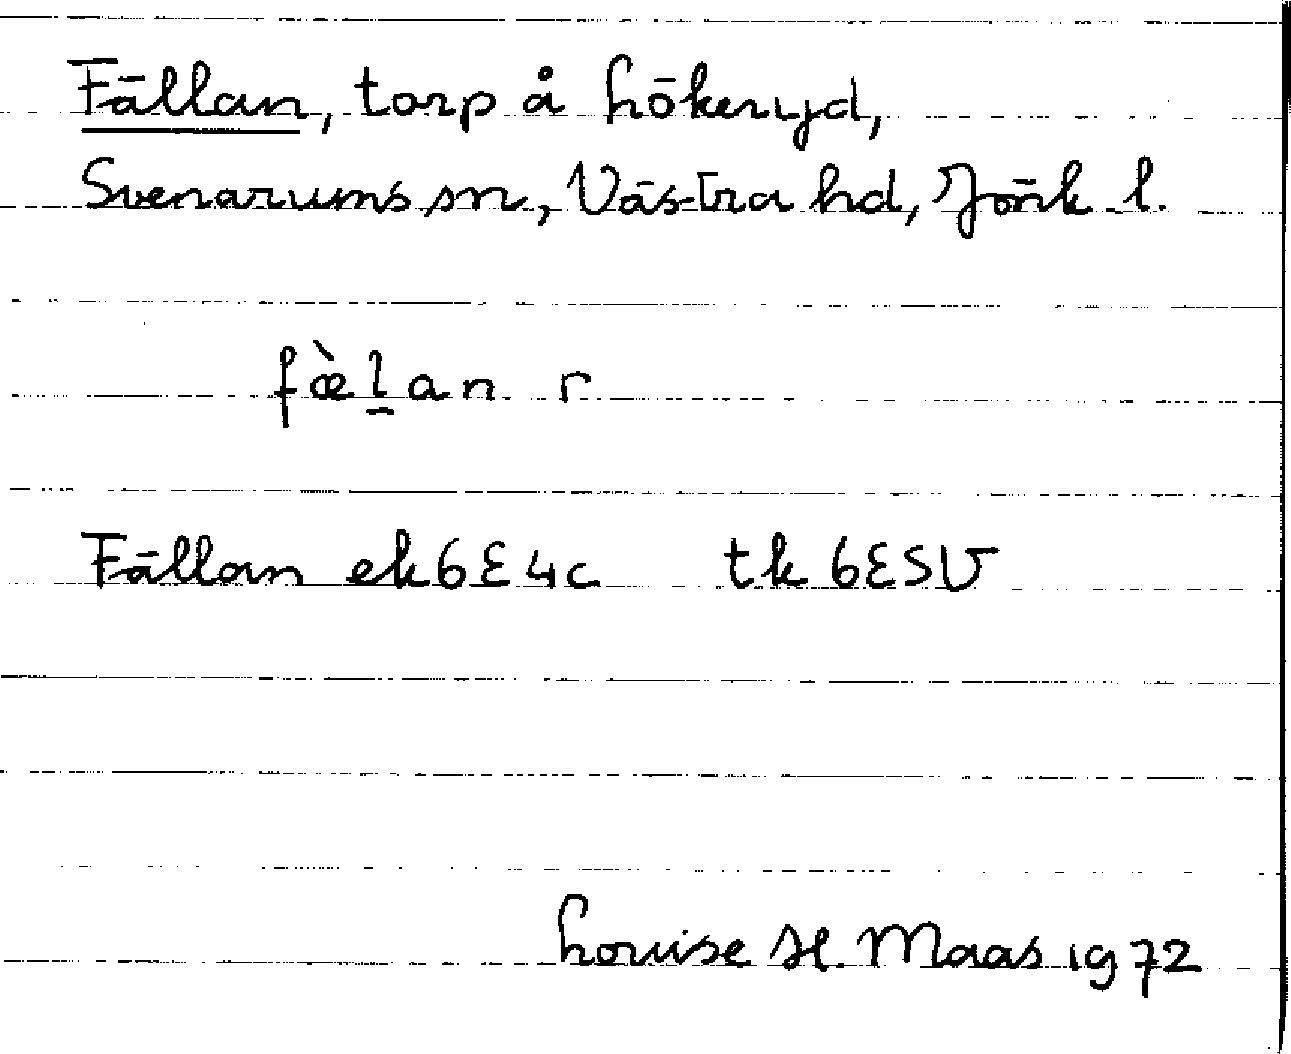 Fällan, torp å Lökeryd,
Svenarums sn, Västra hd, Jönk l.
fæ̀l̠an r
Fällan ek 6E4c tk 6ESV
Louise H. Maas 1972